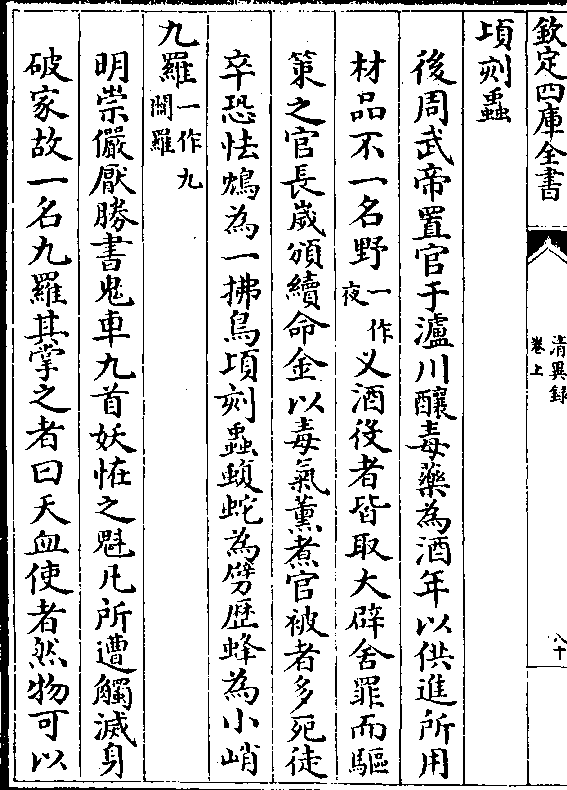 欽定四庫全書
清異録
卷上
八十
頃刻蟲
後周武帝置官于瀘川釀毒藥為酒年以供進所用
材品不一名野一作夜义酒役者皆取大辟舍罪而驅
策之官長嵗頒續命金以毒氣薰煮官被者多死徒
卒恐怯鴆為一拂鳥頃刻蟲蝮蛇為劈歴蜂為小峭
九羅一作九闗羅
明崇儼厭勝書鬼車九首妖恠之魁凡所遭觸滅身
破家故一名九羅其掌之者曰天血使者然物可以